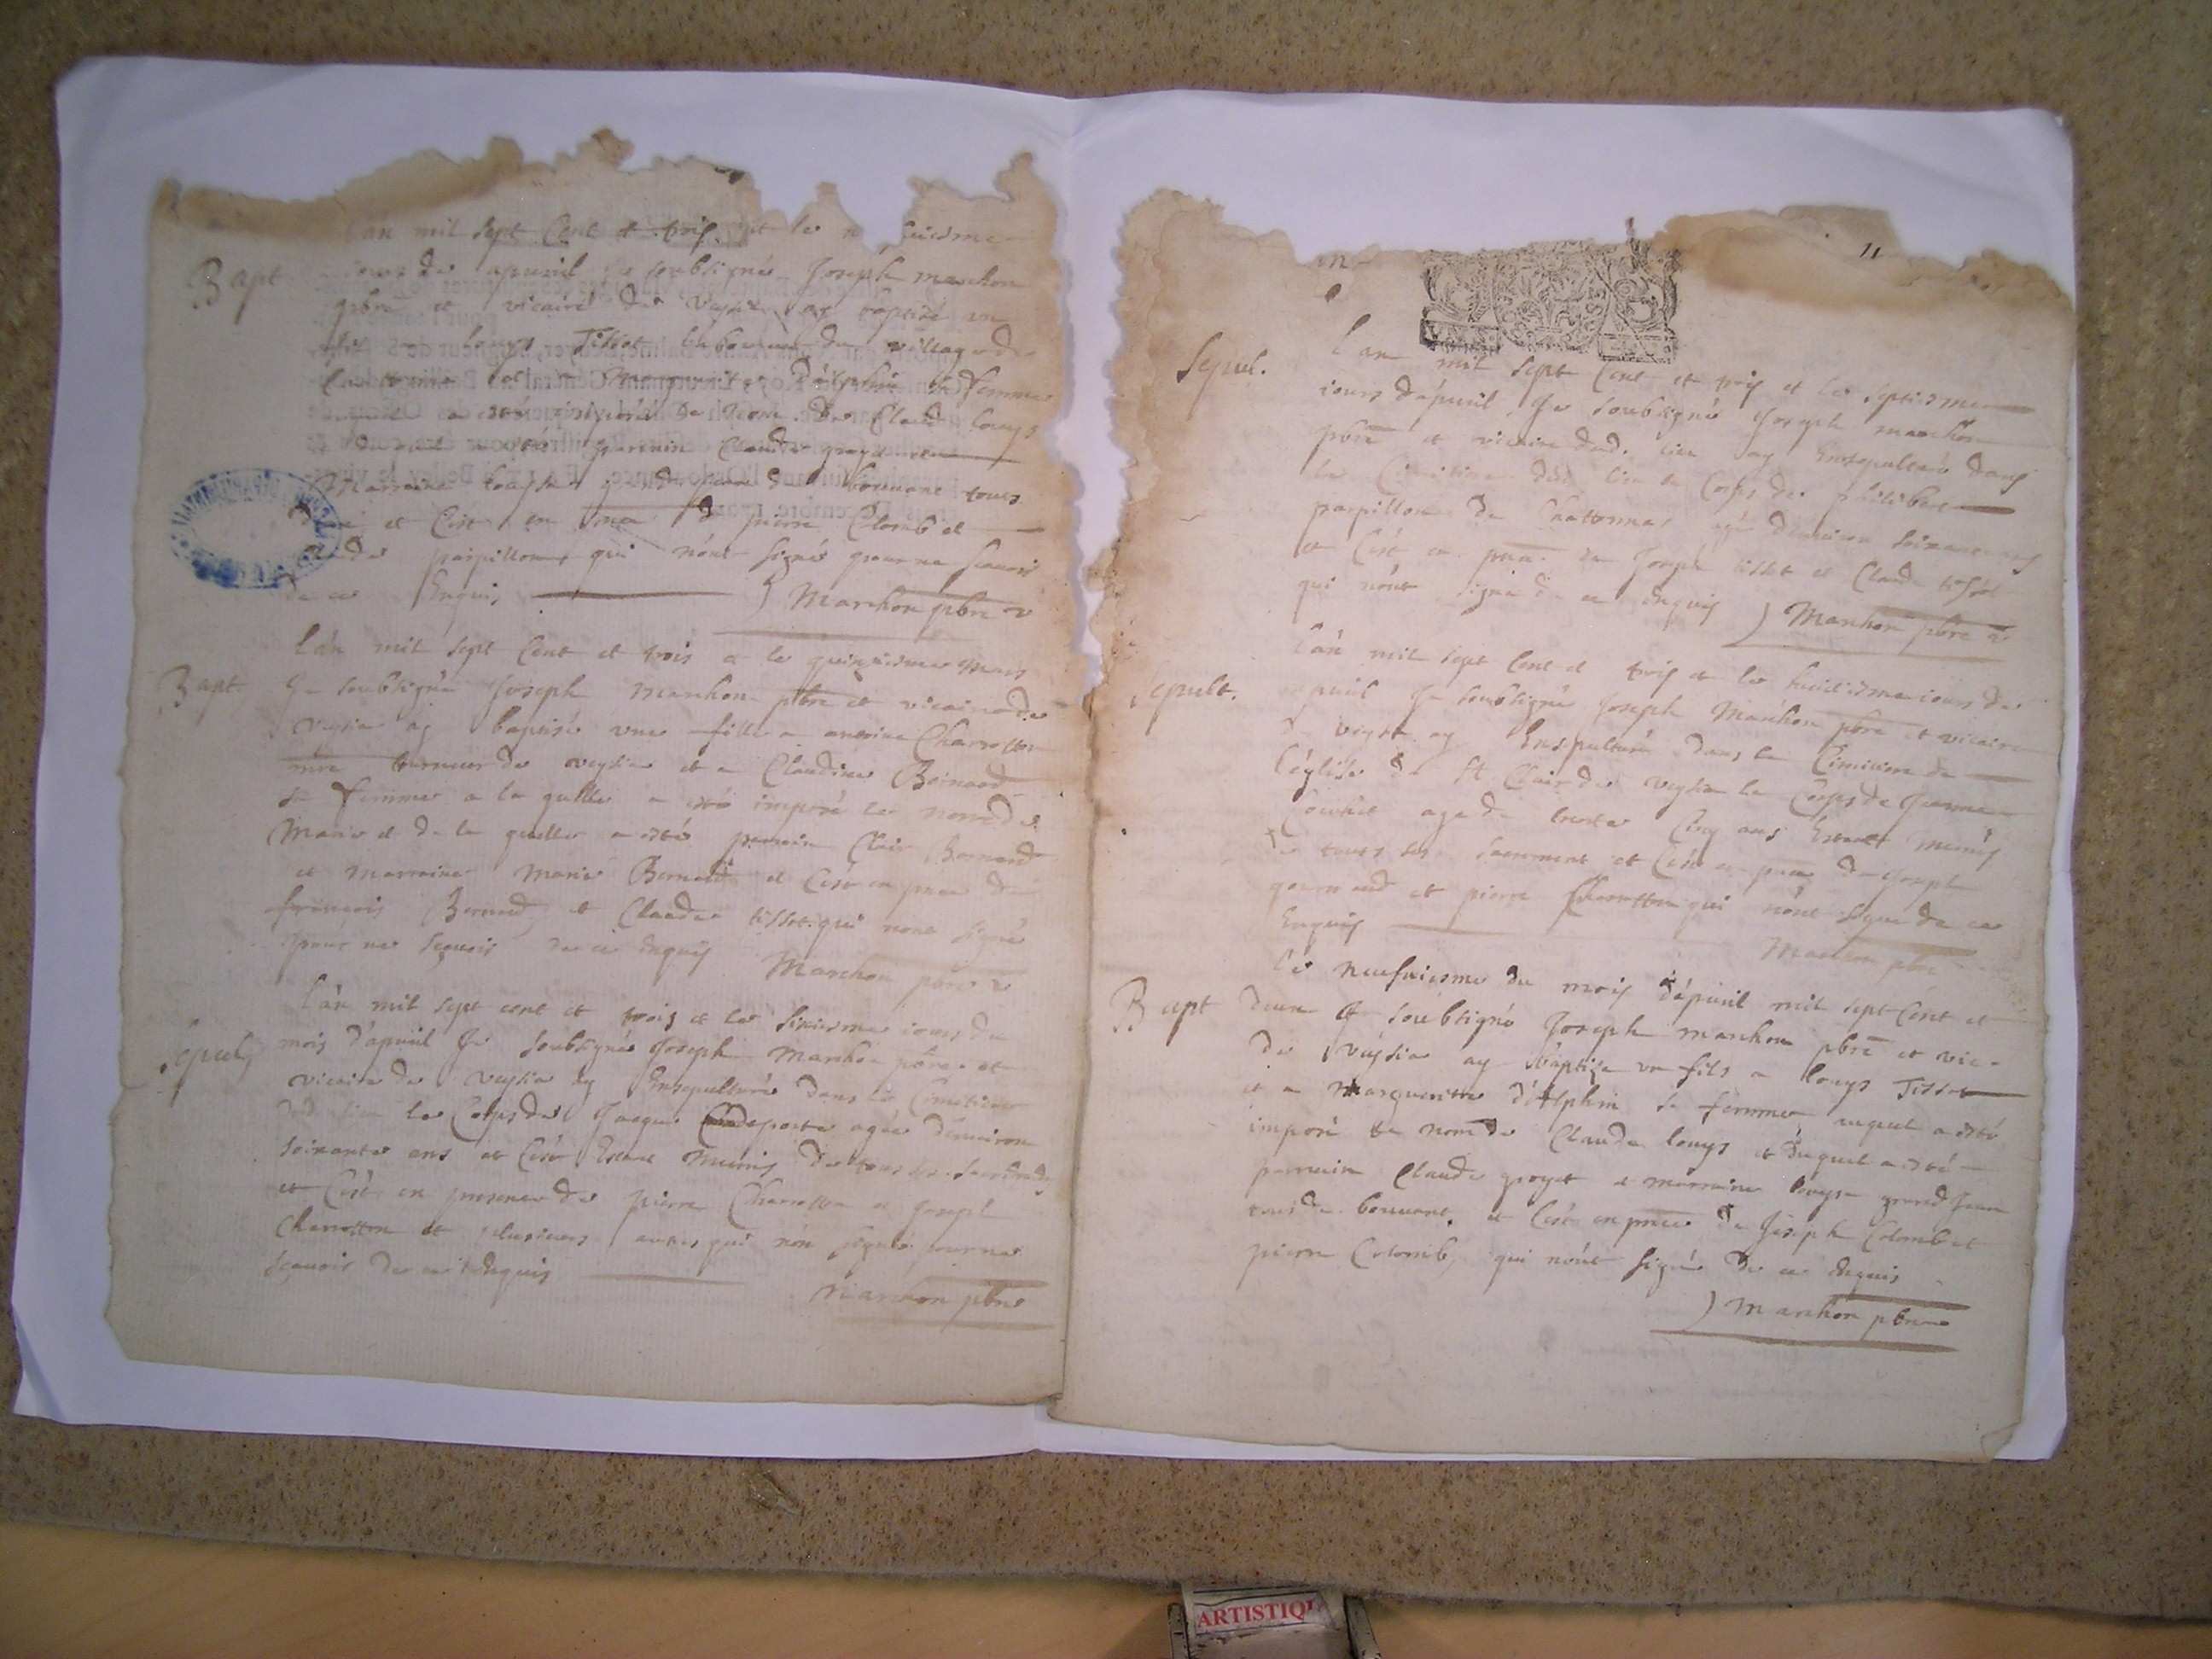 L'an mil sept Cent et trois et le
Bapt. jour de apvril Je soubsigné Joseph marchon
pbre et vicaire de veysia ay baptisé un
fils a louys Tissot laboureur du village de
Chattonna et a Marguerite d'alphin sa femme
auquel a esté imposé le nom de Claude louys
et duquel a esté parrain Claude groyet et
Marraine louyse grand Jean de bouuant tous
et C'est en pnce de pierre Colomb et
Claude parpillon qui n'ont signé pour ne scavoir
de ce Enquis ) Marchon pbre v
L'an mil sept Cent et trois et le quinziesme Mars
Bapt. Je soubsigné Joseph marchon pbre et vicaire de
veysia ay baptisé une fille a antoine Charrotton
mre tourneur de veysia et a Claudine Bernard
sa femme a la quelle a esté imposé le nom de
Marie et de la quelle a esté parrain Clair Bernard
et marraine Marie Bernard et C'est en pnce de
francois Bernard et Claude tissot qui n'ont signé
pour ne scavoir de ce enquis Marchon pbre v
L'an mil sept cent et trois et le sixiesme jour du
Sepul. mois d'apvril Je soubsigné Joseph Marchon pbre et
vicaire de veysia ay Ensepulturé dans le Cimitiere
dud. lieu le Corps de Jacque deporte agée d'environ
soixante ans et C'est Estant Munis de tous les sacrements
et C'est en presence de pierre Charrotton et Joseph
Charrotton et plusieurs autres qui n'on signés pour ne
scavoir de ce enquis
Marchon pbre
11
L'an mil sept Cent et trois et le septiesme
Sepul. jour d'apvril Je soubsigné Joseph marchon
pbre et vicaire dud. lieu ay Ensepulturé dans
le Cimitiere dud. lieu le Corps de philiber
parpillon de Chattonna agé d'environ soixante ans
et C'est en pnce de Joseph tissot et Claude tissot
qui n'ont signé de ce enquis ) Marchon pbre v
L'an mil sept Cent et trois et le huictiesme jour de
Sepult. apvril Je soubsigné Joseph Marchon pbre et vicaire
de veysia ay Ensepulturé dans le Cimitiere de
l'église de St Clair de veysia le Corps de Jeanne
agé de trente Cinq ans Estant munis
de tous ses sacrement et C'est en pnce de Joseph
et pierre Charrotton qui n'ont signé de ce
Enquis
Marchon pbre
Le neufviesme du mois d'apvril mil sept Cent et
Bapt deux Je soubsigné Joseph marchon pbre et vic.
de veysia ay baptise un fils a louys Tissot
et a Marguerite d'alphin sa femme auquel a esté
imposé le nom de Claude louys et duquel a esté
parrain Claude groyet et marraine louyse grand Jean
tous de bouuant. et C'est en pnce de Joseph Colomb et
pierre Colomb, qui n'ont signé de ce enquis
) Marchon pbre
ARTISTIQ